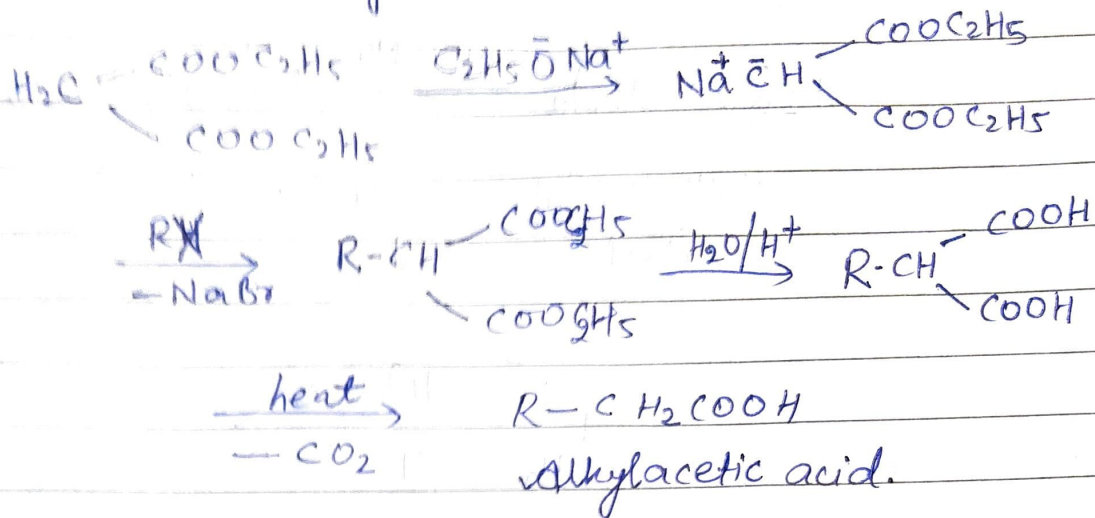 H₂C COOC₂H₅ COOC₂H₅ C₂H₅ŌNa⁺ Na⁺ C̄H COOC₂H₅ COOC₂H₅
RX -NaBr R-CH COOC₂H₅ COOC₂H₅ H₂O/H⁺ R-CH COOH COOH
heat -CO₂ R-CH₂COOH
Alkylacetic acid.